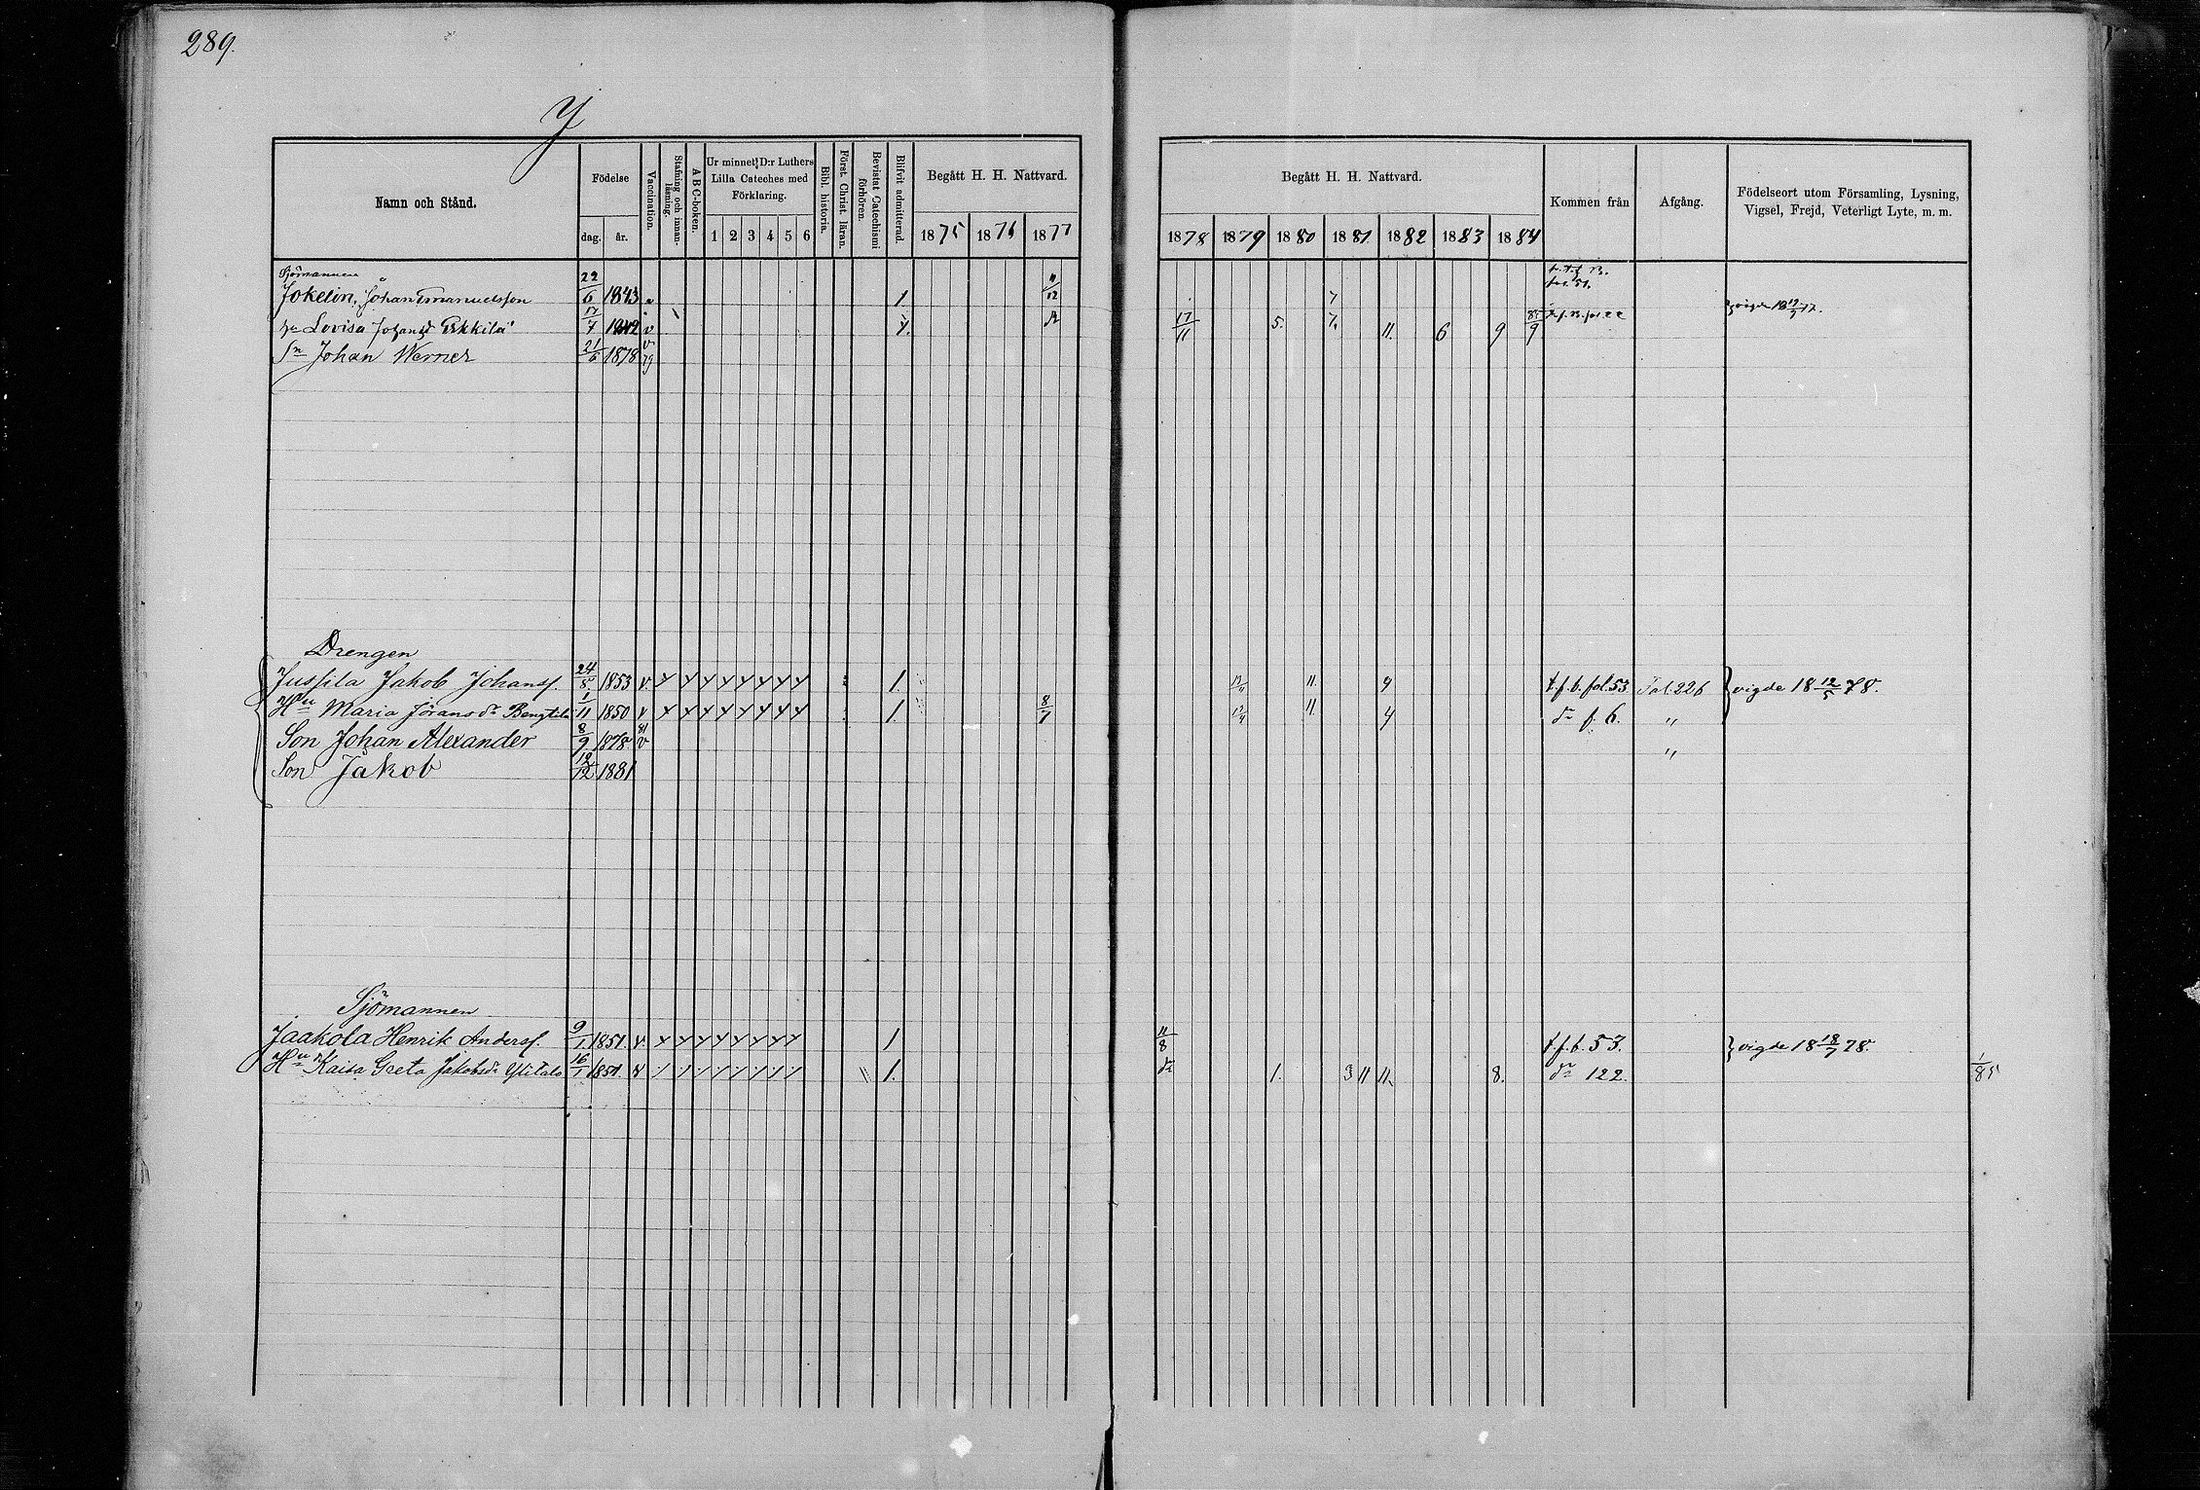 289.
Y
Namn och Stånd.
Födelse
dag.
år.
Vaccination.
Stafning och innanläsning.
A B C-boken.
Ur minnet D:r Luthers Lilla Cateches med Förklaring.
1 2 3 4 5 6
Bibl. historia.
Först. Christ. läran.
Bevistat Catechismi förhören.
Blifvit admitterad.
Begått H. H. Nattvard.
1875 1876 1877
Begått H. H. Nattvard.
1878 1879 1880 1881 1882 1883 1884
Kommen från
Afgång.
Födelseort utom Församling, Lysning,
Vigsel, Frejd, Veterligt Lyte, m. m.
Sjömannen 22
Jokelin, Johan Emanuelsson 6 1843 1 12 7 fol. 51.
Lovisa Johansd Erkkilä 17/7 v 17/11 5. 7. 11. 6 9 85/9 vigde 18 17
Sn Johan Werner 21/6 1878 v 79
Drengen
Jussila Jakob Johanss. 24/8 1853 v. 1. 11. 9 t.f.b. fol. 53 Fol. 226 vigde 18 12/5 78.
Hu Maria Jöransdr Bengtila 1/11 1850 1. 8/7 11. 4 dr f. 6. "
Son Johan Alexander 8/9 1878 81 v "
Son Jakob 18/12 1881
Sjömannen
Jaakola Henrik Anderss. 9/1 1851. 1 11/8 t.f.b. 53. vigde 18 18/7 78.
Hu Kaisa Greta Jakobsdr Ylitalo 16/1 1851. 1. dr 1. 3 11 11. 8. dr 122. 1/85